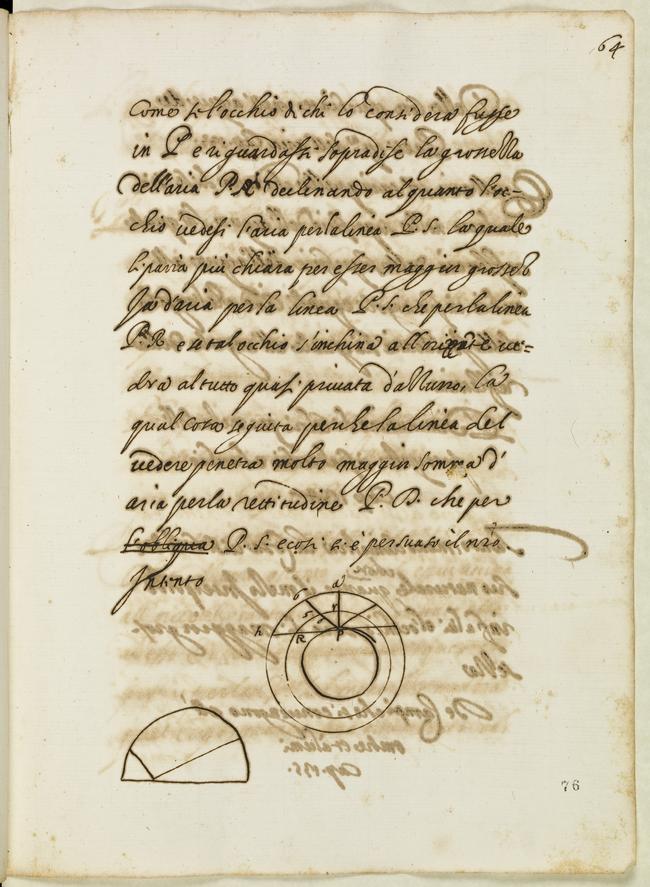 64
Come se l'occhio di chi lo considera fusse
in P e riguardassi sopra di se la grossezza
dell'aria P R declinando alquanto l'oc=
chio vedessi l'aria per la linea P. S. la quale
li parria più chiara per esser maggior grossez
za d'aria per la linea P. S. che per la linea
P. R e se tal occhio s'inchina all' ve=
drà al tutto quasi privata d'azzurro, la
qual cosa seguita perche la linea del
vedere penetra molto maggior somma d'
aria per la rettitudine P. D. che per
l'obliqua P. S. e così si è persuaso il nro
Intento
a
6
r
5
h
R
P
76